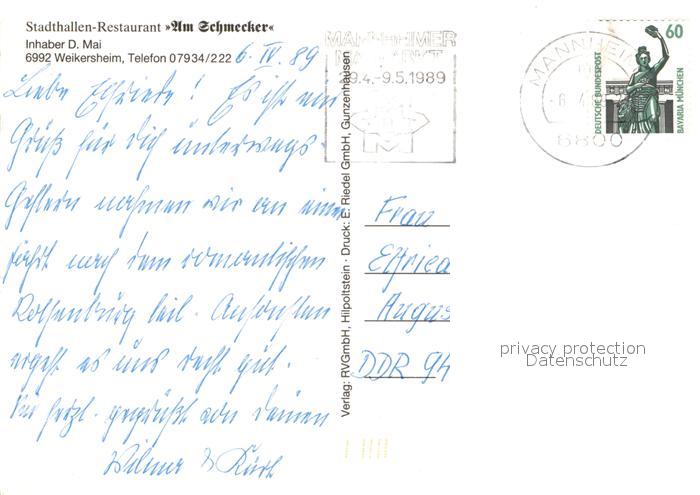 Stadthallen-Restaurant »Am Schmecker«
Inhaber D. Mai
6992 Weikersheim, Telefon 07934/222
6. IV. 89
Liebe Elfriede! Es ist ein
Gruß für Dich unterwegs.
Gestern nahmen wir an einer
Fahrt nach dem romantischen
Rothenburg teil. Ansonsten
ergeht es uns recht gut.
Sei herzl. gegrüßt von Deinen
Wilma & Karl
Verlag: RVGmbH, Hilpoltstein · Druck: E. Riedel GmbH, Gunzenhausen
MANNHEIMER
9.4.-9.5.1989
MANNHEIM
6800
60
DEUTSCHE BUNDESPOST
BAVARIA MÜNCHEN
Frau
Elfried
Augus
DDR 94
privacy protection
Datenschutz